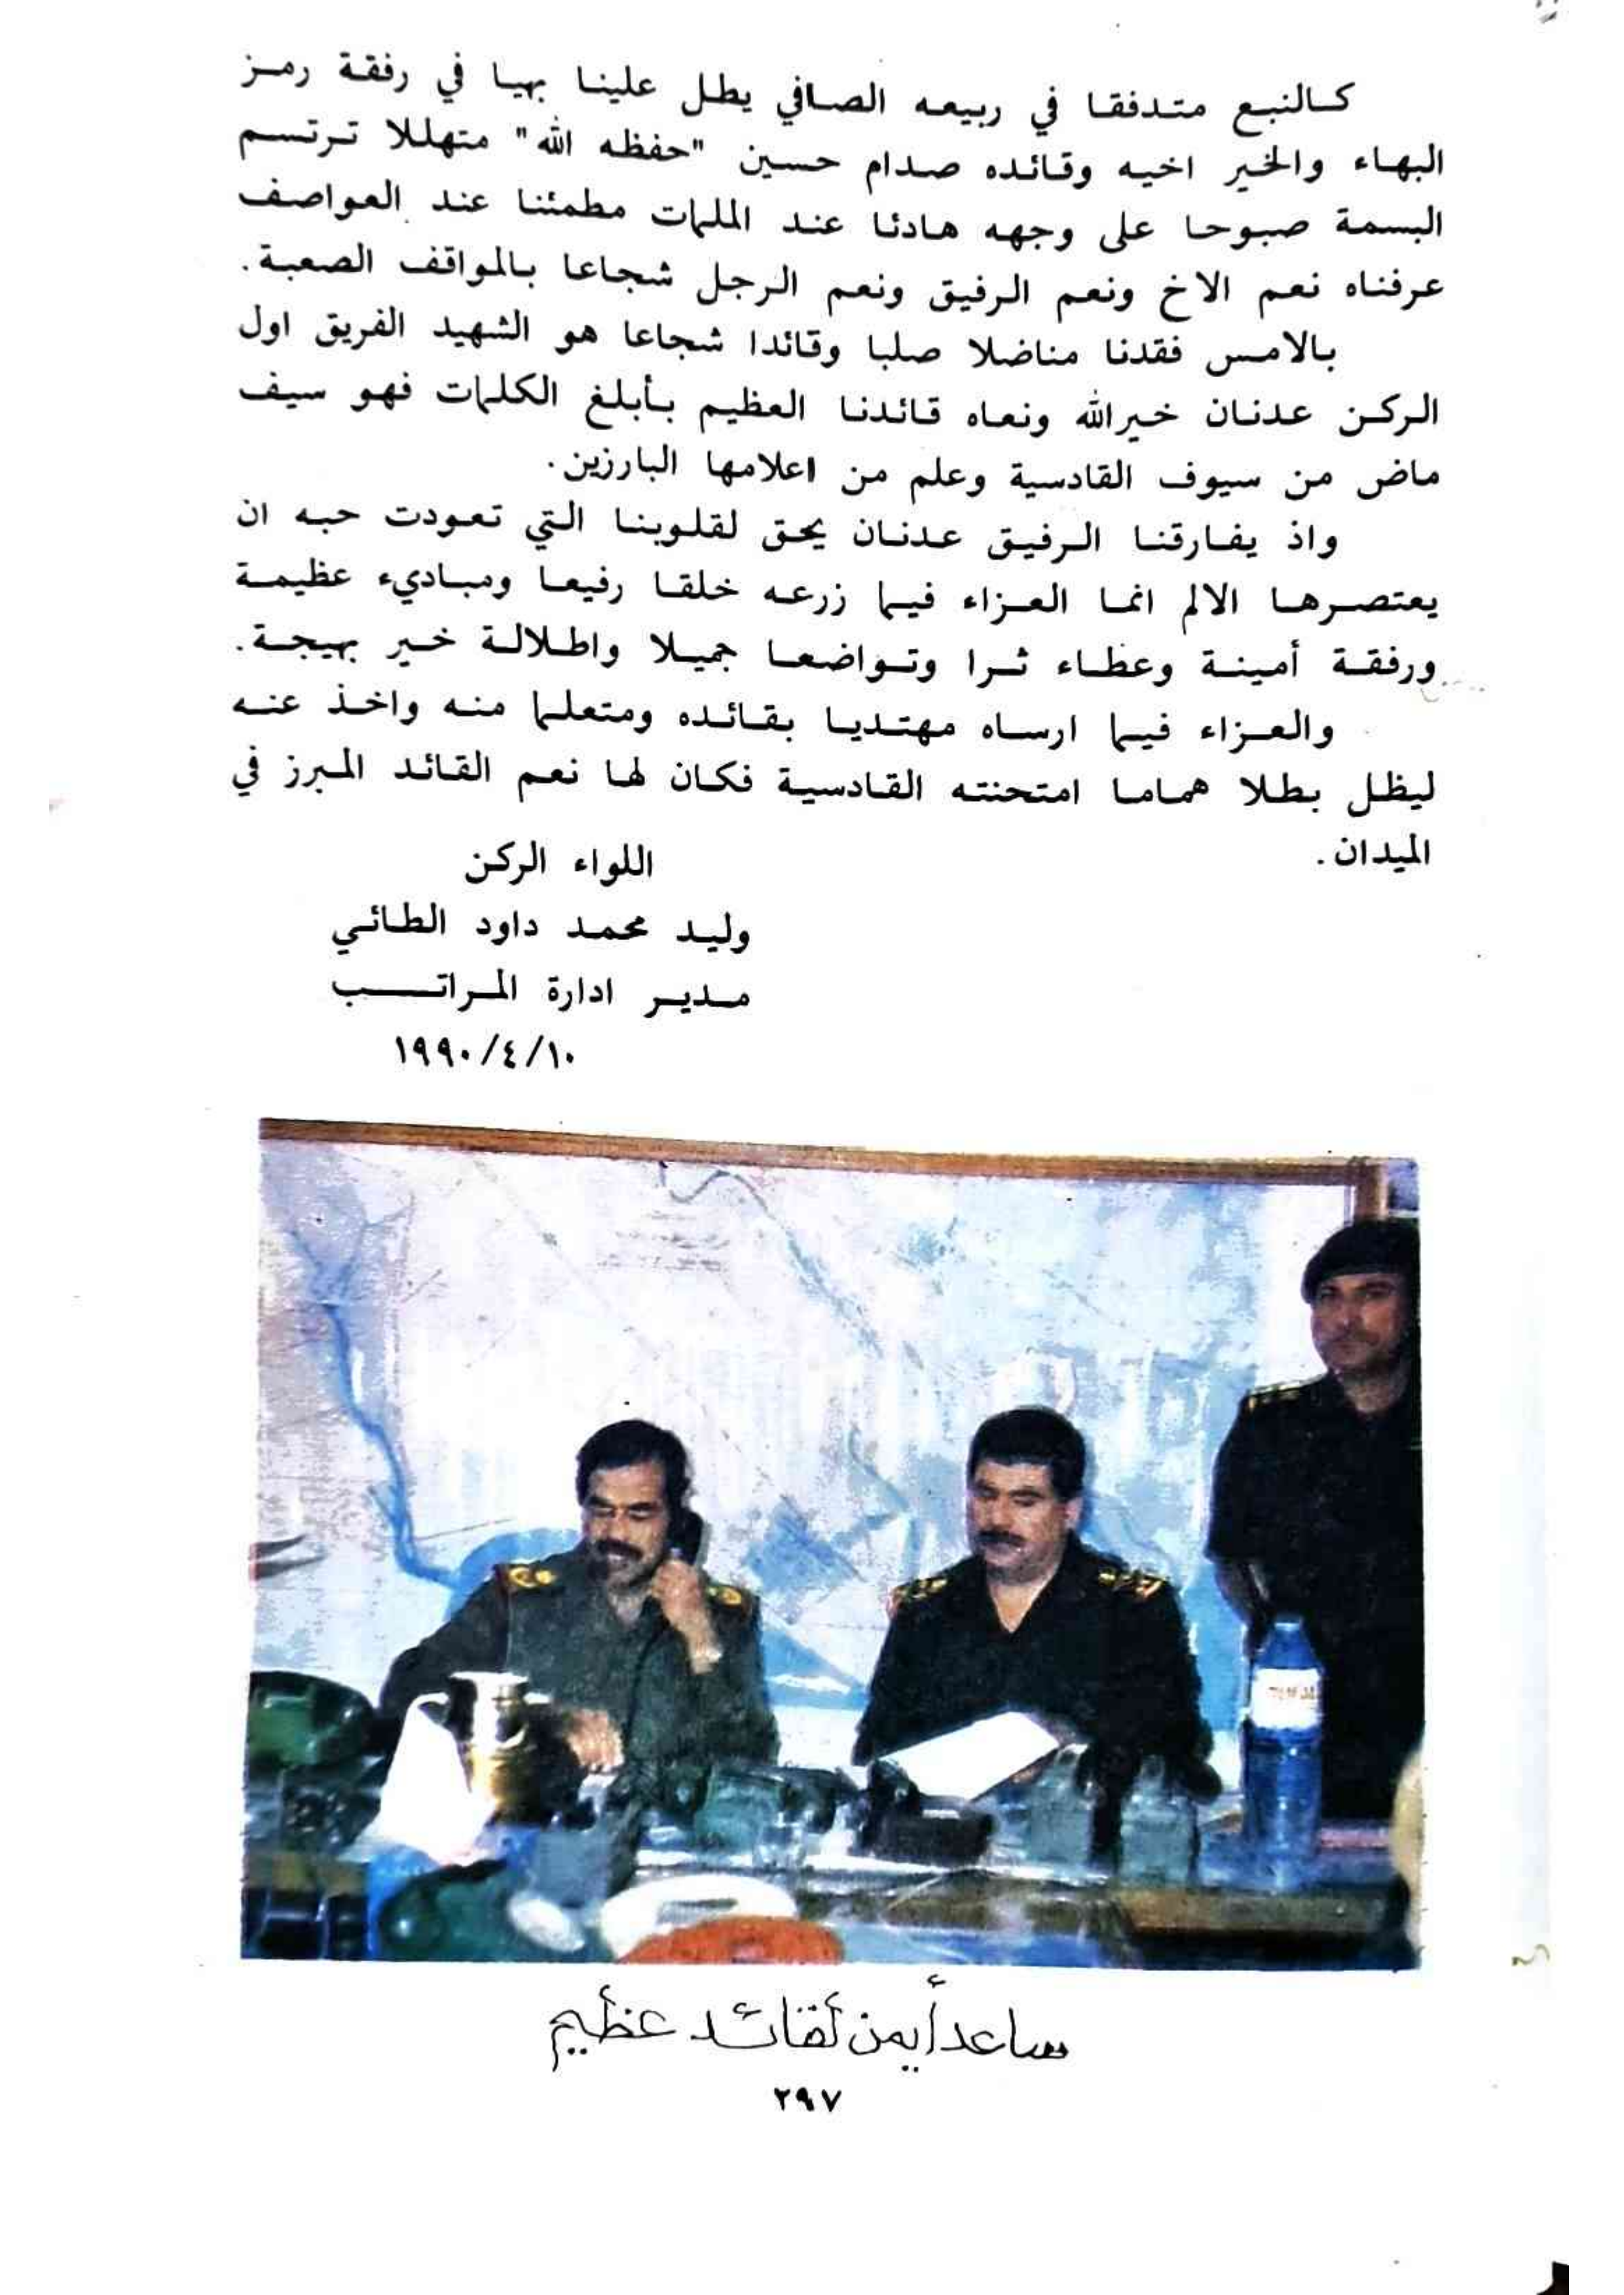 كالنبع متدفقا في ربيعه الصافي يطل علينا بهيا في رفقة رمز
البهاء والخير اخيه وقائده صدام حسين "حفظه الله" متهللا ترتسم
البسمة صبوحا على وجهه هادئا عند الملمات مطمئنا عند العواصف
عرفناه نعم الاخ ونعم الرفيق ونعم الرجل شجاعا بالمواقف الصعبة.
بالامس فقدنا مناضلا صلبا وقائدا شجاعا هو الشهيد الفريق اول
الركن عدنان خيرالله ونعاه قائدنا العظيم بأبلغ الكلمات فهو سيف
ماض من سيوف القادسية وعلم من اعلامها البارزين.
واذ يفارقنا الرفيق عدنان يحق لقلوبنا التي تعودت حبه ان
يعتصرها الالم انما العزاء فيما زرعه خلقا رفيعا ومباديء عظيمة
ورفقة أمينة وعطاء ثرا وتواضعا جميلا واطلالة خير بهيجة.
والعزاء فيما ارساه مهتديا بقائده ومتعلما منه واخذ عنه
ليظل بطلا هماما امتحنته القادسية فكان لها نعم القائد المبرز في
الميدان.
اللواء الركن
وليد محمد داود الطائي
مدير ادارة المراتب
١٩٩٠/٤/١٠
ساعد أيمن لقائد عظيم
٢٩٧